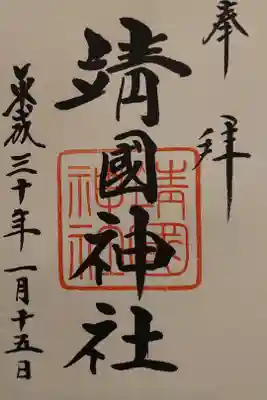 奉拝
靖國神社
靖国神社
平成三十年一月十五日